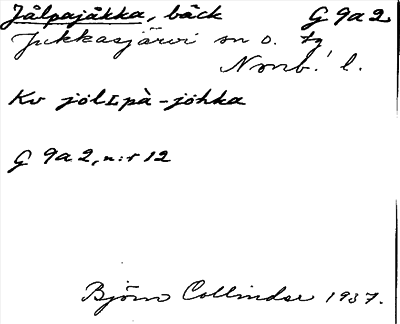 Jålpajåkka, bäck G 9a 2
Jukkasjärvi sn o. tg
Norrb. l.
Kv jölꞮpà-jöhka
G 9a 2, n:r 12
Björn Collinder 1937.